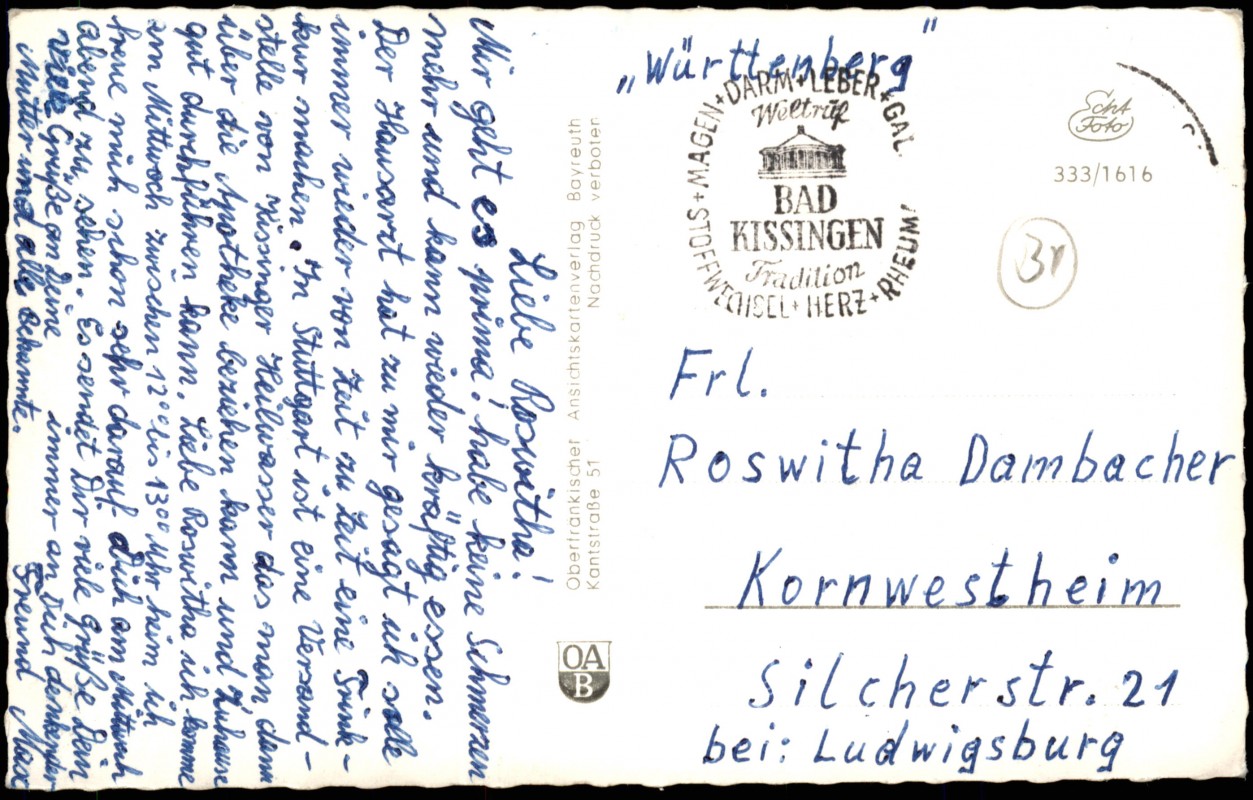 Liebe Roswitha!
Mir geht es prima! habe keine Schmerzen
mehr und kann wieder kräftig essen.
Der Hausarzt hat zu mir gesagt ich solle
immer wieder von Zeit zu Zeit eine Trink-
kur machen. In Stuttgart ist eine Versand-
stelle von Kissinger Heilwasser das man dann
über die Apotheke beziehen kann und Zuhause
gut durchführen kann. Liebe Roswitha ich komme
am Mittwoch zwischen 12°° bis 13°° Uhr heim ich
freue mich schon sehr darauf Dich am Mittwoch
abend zu sehen. Es sendet Dir viele Grüße Dein
viele Grüße an Deine immer an Dich denkender
Mutter und alle Bekannte. Freund Max
Oberfränkischer Ansichtskartenverlag Bayreuth
Kantstraße 51 Nachdruck verboten
OA
B
„Württemberg"
STOFFWECHSEL+HERZ+RHEUMA
+MAGEN+DARM+LEBER+GAL
Weltruf
BAD
KISSINGEN
Tradition
Echt
Foto
333/1616
Br
Frl.
Roswitha Dambacher
Kornwestheim
Silcherstr. 21
bei: Ludwigsburg